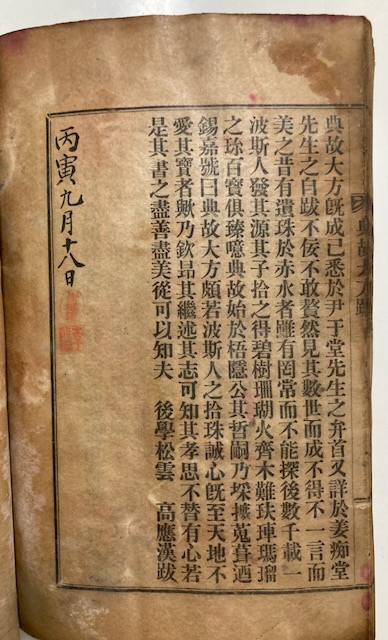 典故大方跋
典故大方旣成已悉於尹于堂先生之弁首又詳於姜痴堂
先生之自跋不佞不敢贅然見其數世而成不得不一言而
美之昔有遺珠於赤水者雖有罔常而不能探後數千載一
波斯人發其源其子拾之得碧樹珊瑚火齊木難玞琿瑪瑠
之珎百寶俱臻噫典故始於梧隱公其哲嗣乃埰摭蒐葺迺
錫嘉號曰典故大方頗若波斯人之拾珠誠心旣至天地不
愛其寶者歟乃欽昻其繼述其志可知其孝思不替有心若
是其書之盡善盡美從可以知夫 後學松雲 高應漢跋
丙寅九月十八日